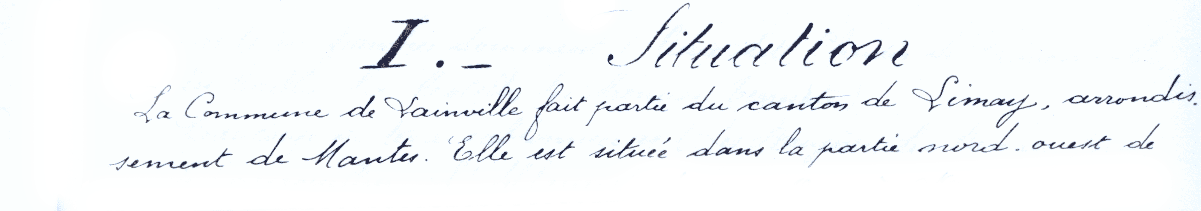 I. - Situation
La Commune de Lainville fait partie du canton de Limay, arrondis.
sement de Mantes. Elle est située dans la partie nord-ouest de